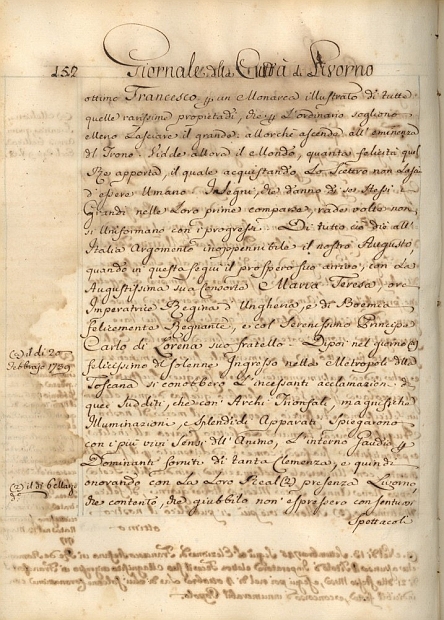 152
Giornale della Città di Livorno
ottimo Francesco p un Monarca illustrato di tutte
quelle rarissime proprietadi, che p l'ordinario sogliono
meno lasciare il grande, allorchè ascende all'eminenza
del Trono. Vidde allora il Mondo, quanta felicità quel
Rè apporta, il quale acquistando lo Scetro non lascia
d'essere Umano. Insegni, che danno di se stessi i
Grandi nelle loro prime comparse, rade volte non
si uniformano con i progressi. Di tutto ciò diè all'
Italia Argomento inoppennibile il nostro Augusto
quando in questa seguì il prospero suo arrivo, con la
Augustissima sua Consorte Maria Teresa, ora
Imperatrice Regina d'Ungheria, e di Boemia
felicemente Regnante, e col Serenissimo Principe
Carlo di Lorena suo fratello. Dipoi nel giorno (1)
felicissimo del solenne Ingresso nella Metropoli della
Toscana si conobbero l'incessanti acclamazioni di
quei Sudditi, che con Archi Trionfali, magnifiche
Illuminazioni, e Splendidi Apparati spiegarono
con i più vivi sensi dell'Animo, l'interno gaudio p
Dominanti forniti di tanta Clemenza, e quindi
onorando con la loro Real (2) presenza Livorno,
che contento, che giubbilo non espressero con sontuosi
Spettacoli
(1) il di 20
Febbraio 1739
(2) il di 6 Marzo